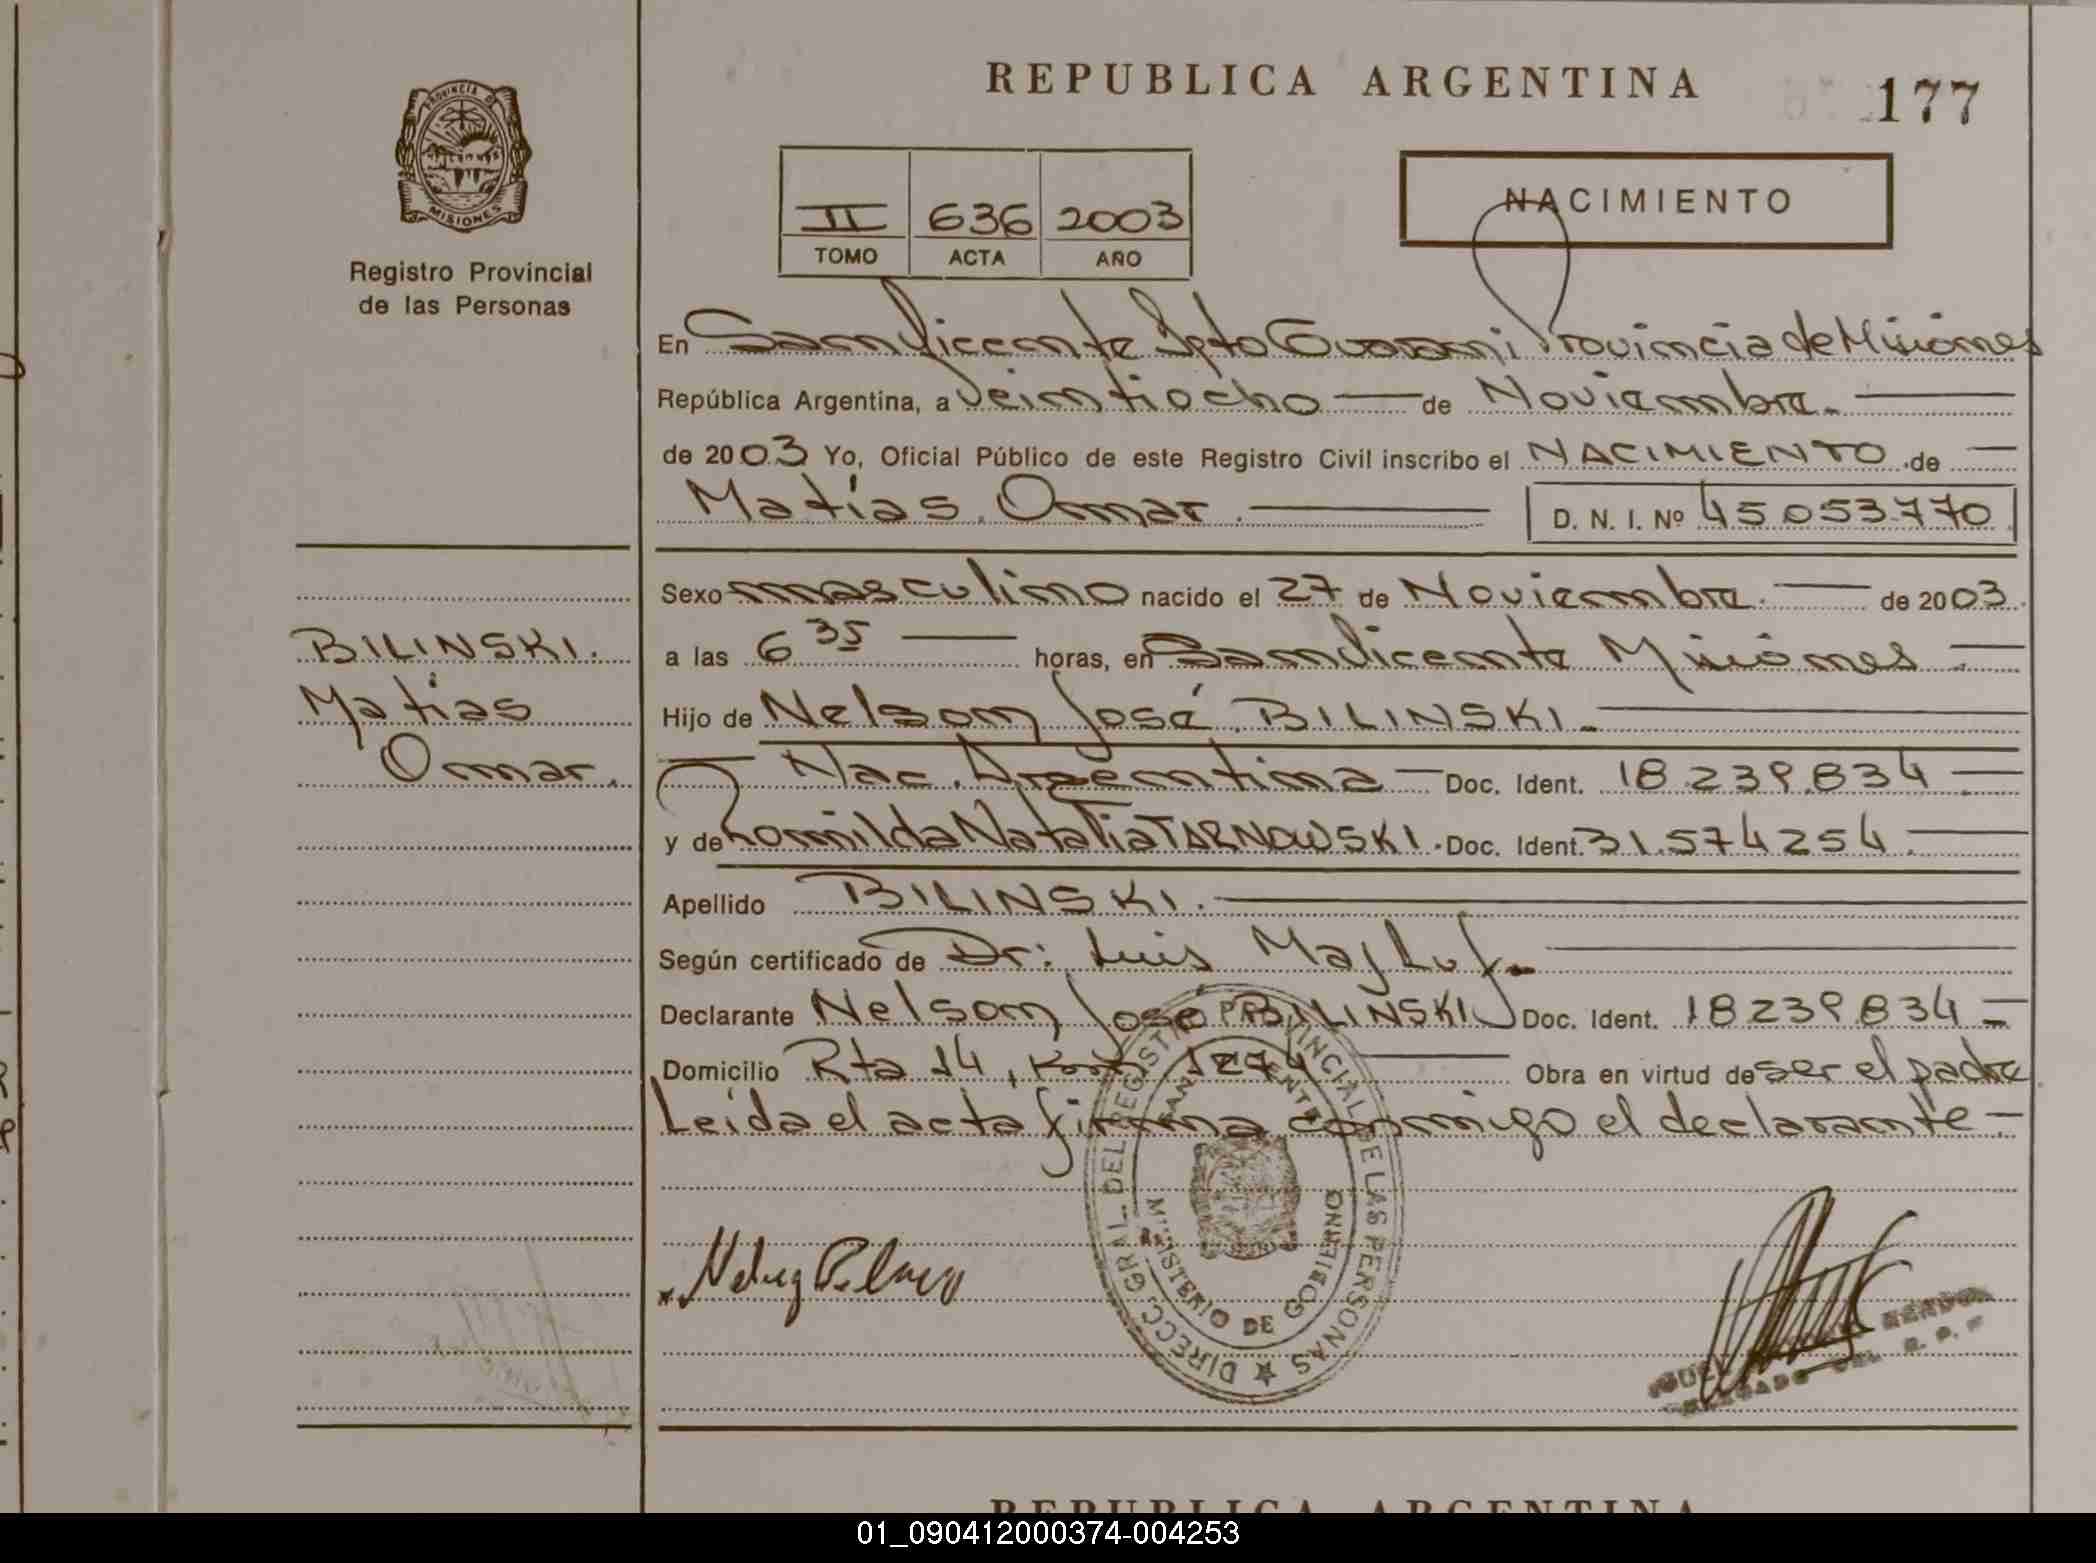 REPUBLICA ARGENTINA
177
PROVINCIA DE
MISIONES
Registro Provincial
de las Personas
II 636 2003
TOMO ACTA AÑO
NACIMIENTO
En San Vicente Dpto Guarani Provincia de Misiones
República Argentina, a veintiocho de Noviembre.
de 2003 Yo, Oficial Público de este Registro Civil inscribo el NACIMIENTO de
Matías Omar. D. N. I. Nº 45.053.770
Sexo masculino nacido el 27 de Noviembre. de 2003.
a las 6 35 horas, en San Vicente Misiones
Hijo de Nelson José BILINSKI.
Nac. Argentina Doc. Ident. 18.239.834
y de Romilda Natalia TARNOWSKI. Doc. Ident. 31.574254.
Apellido BILINSKI.
Según certificado de Dr: Luis Majluf.
Declarante Nelson José BILINSKI Doc. Ident. 18239834
Domicilio Rta 14, Km 1274 Obra en virtud de ser el padre
Leida el acta firma conmigo el declarante
BILINSKI.
Matias
Omar.
DIRECC. GRAL. DEL REGISTRO PROVINCIAL DE LAS PERSONAS
SAN VICENTE
MINISTERIO DE GOBIERNO
REPUBLICA ARGENTINA
01_090412000374-004253